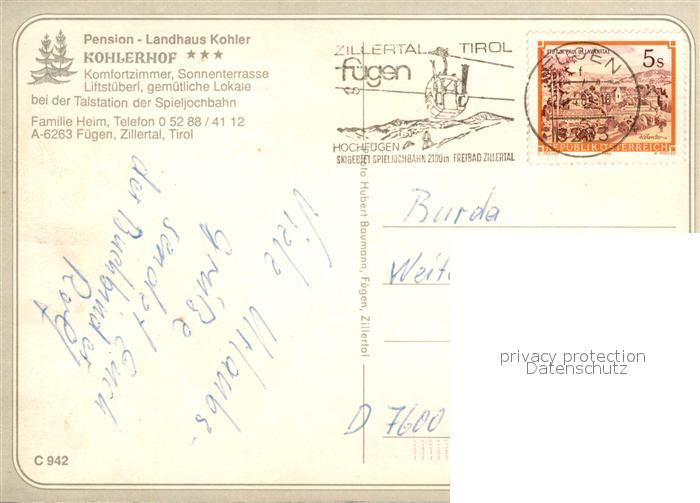 Pension - Landhaus Kohler
KOHLERHOF ★★★
Komfortzimmer, Sonnenterrasse
Liftstüberl, gemütliche Lokale
bei der Talstation der Spieljochbahn
Familie Heim, Telefon 0 52 88 / 41 12
A-6263 Fügen, Zillertal, Tirol
ZILLERTAL TIROL
fügen
HOCHFÜGEN
SKIGEBIET SPIELJOCHBAHN 2100m FREIBAD ZILLERTAL
STIFT ST. PAUL IM LAVANTTAL
5s
REPUBLIK ÖSTERREICH
FÜGEN
Viele Urlaubs-
grüße
sendet Euch
der Buchbinder
Rolf
Hubert Baumann, Fügen, Zillertal
Burda
D 7600
privacy protection
Datenschutz
C 942